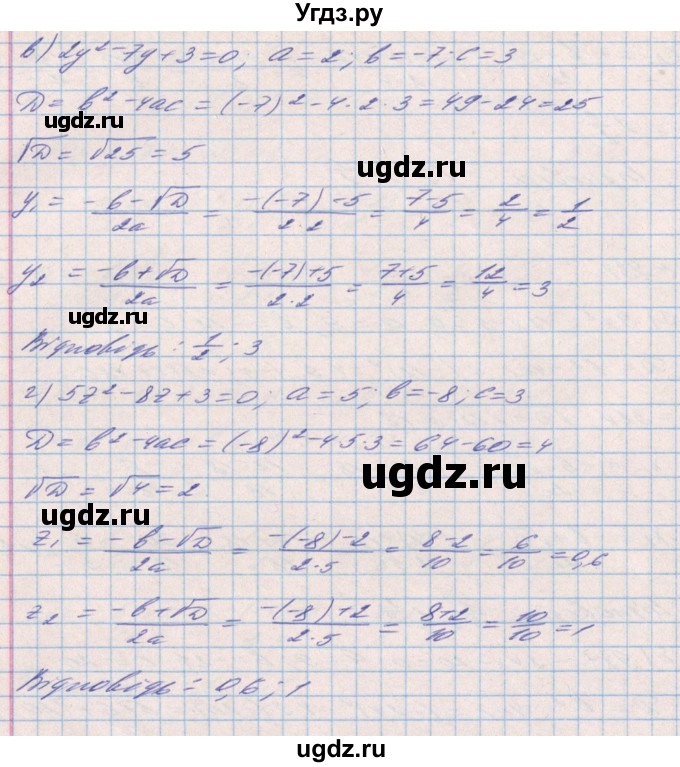 Угдз.ру
в) 2y² - 7y + 3 = 0; a = 2; b = -7; c = 3
D = b² - 4ac = (-7)² - 4·2·3 = 49 - 24 = 25
ugdz.ru
√D = √25 = 5
ugdz.ru
y₁ = (-b - √D)/2a = (-(-7) - 5)/2·2 = (7-5)/4 = 2/4 = 1/2
y₂ = (-b + √D)/2a = (-(-7) + 5)/2·2 = (7+5)/4 = 12/4 = 3
ugdz.ru
Відповідь: 1/2; 3
г) 5z² - 8z + 3 = 0; a = 5; b = -8; c = 3
D = b² - 4ac = (-8)² - 4·5·3 = 64 - 60 = 4
ugdz.ru
√D = √4 = 2
ugdz.ru
z₁ = (-b - √D)/2a = (-(-8) - 2)/2·5 = (8-2)/10 = 6/10 = 0,6
z₂ = (-b + √D)/2a = (-(-8) + 2)/2·5 = (8+2)/10 = 10/10 = 1
ugdz.ru
Відповідь: 0,6; 1
ugdz.ru